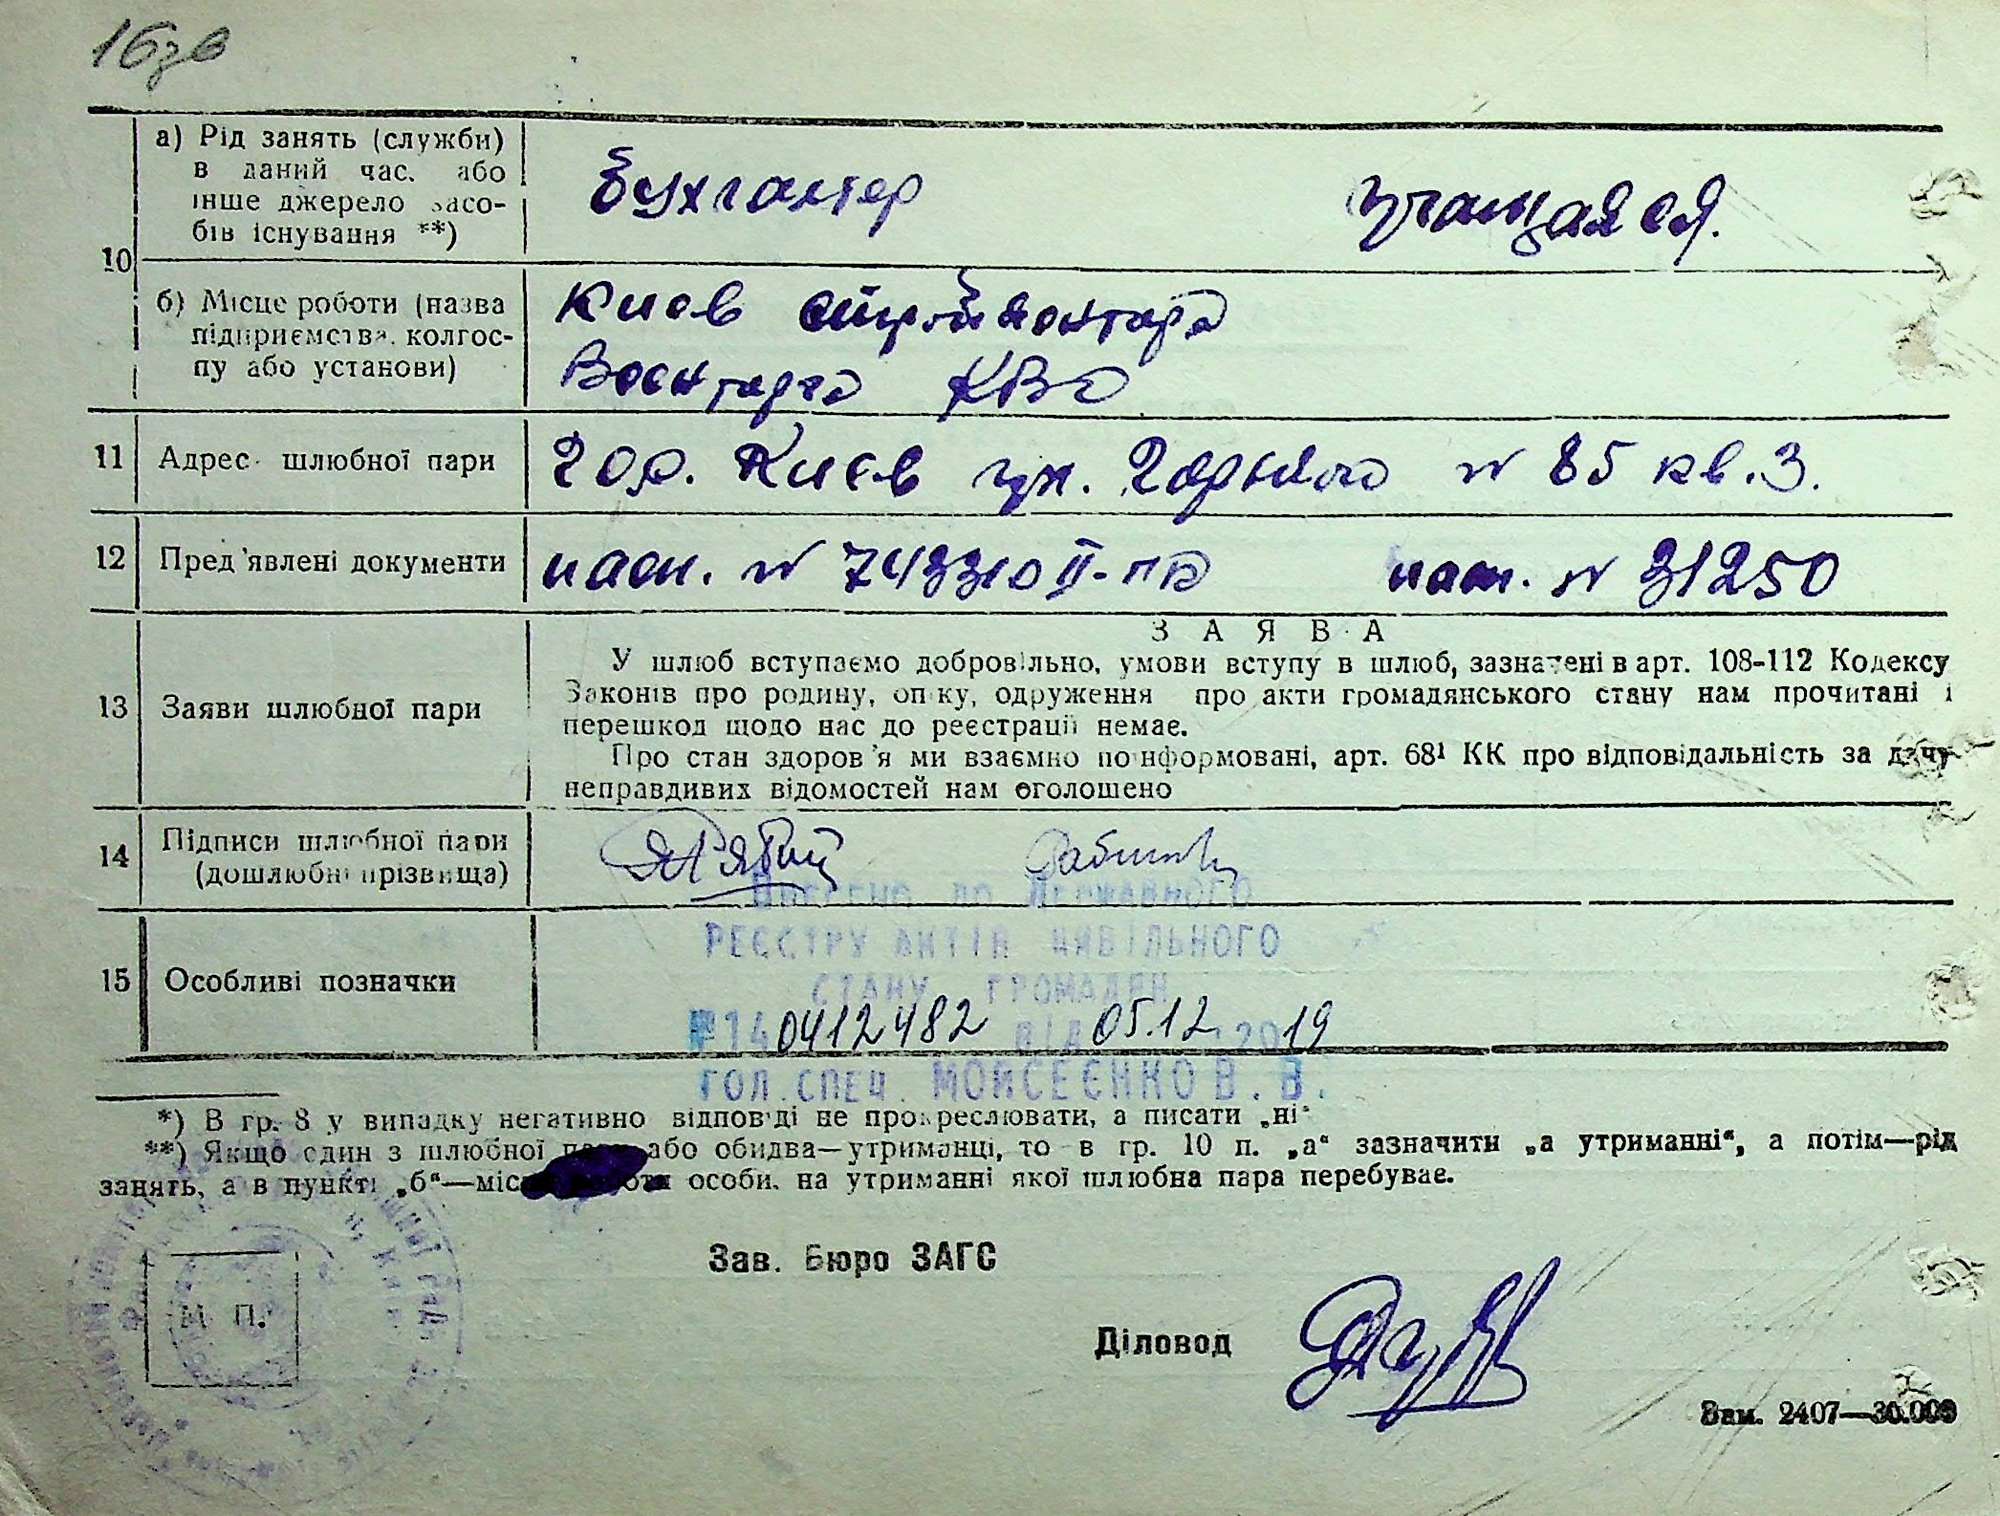 16зв
а) Рід занять (служби)
в даний час, або
інше джерело засо-
бів існування **)
Бухгалтер
учащаяся.
10
б) Місце роботи (назва
підприємства, колгос-
пу або установи)
Киев
Военторга КВО
11
Адрес шлюбної пари
гор. Киев ул. Горького № 85 кв. 3.
12
Пред'явлені документи
пасп. № 743310 II-
пасп. № 31250
ЗАЯВА
13
Заяви шлюбної пари
У шлюб вступаємо добровільно, умови вступу в шлюб, зазначені в арт. 108-112 Кодексу
Законів про родину, опіку, одруження про акти громадянського стану нам прочитані і
перешкод щодо нас до реєстрації немає.
Про стан здоров'я ми взаємно поінформовані, арт. 68¹ КК про відповідальність за дачу
неправдивих відомостей нам оголошено
14
Підписи шлюбної пари
(дошлюбні прізвища)
Внесено до Державного
реєстру актів цивільного
стану громадян
15
Особливі позначки
№ 140412482 від 05.12.2019
гол. спец. Моисеєнко В. В.
*) В гр. 8 у випадку негативно відповіді не прокреслювати, а писати „ні"
**) Якщо один з шлюбної пари або обидва—утриманці, то в гр. 10 п. „а" зазначити „а утриманні", а потім—рід
занять, а в пункті „б"—місце роботи особи, на утриманні якої шлюбна пара перебуває.
Зав. Бюро ЗАГС
М. П.
Діловод
Зам. 2407—30.000